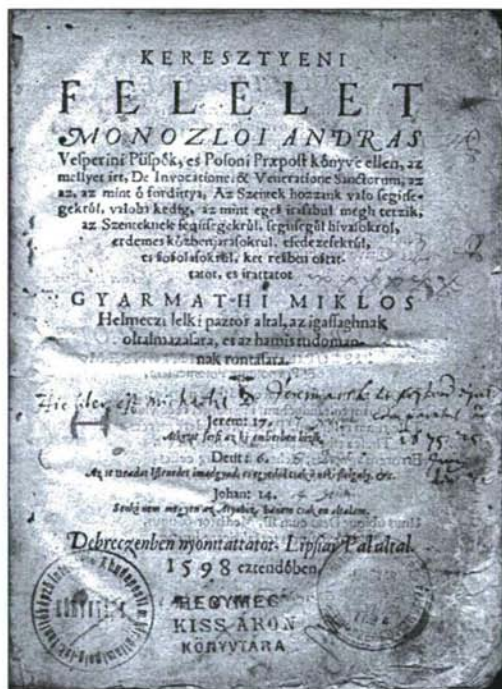 KERESZTYENI
FELELET
MONOZLOI ANDRAS
Vesperini Püspök, es Posoni Præpost könyve ellen, az
mellyet irt, De Invocatione, & Veneratione Sanctorum, az
az, az mint ö fordittya, Az Szentek hozzank valo segitse-
gekrül, valoba kedig, az mint egesz irasabul megh tetzik,
az Szenteknek segitsegekrül, segitsegül hivasokrol,
erdemes közbenjarasokrul, esedezesekrül,
es ket reszben oktat-
tatot, es irattatot
GYARMATHI MIKLOS
Helmeczi lelki paztor altal, az igassaghnak
oltalmazasara, es az hamis tudoman-
nak rontasara.
Hic liber est
Jerem: 17.
az ki emberben bizik.
Deut: 6.
Az te Uradat Istenedet imadgyad, es egyedül csak neki szolgaly. &c.
Johan: 14.
Senki nem megyen az Atyahoz, hanem csak en altalam.
Debreczenben nyomtattatot, Lipsiai Pal altal.
1598 eztendöben.
HEGYMEG
KISS ARON
KÖNYVTARA